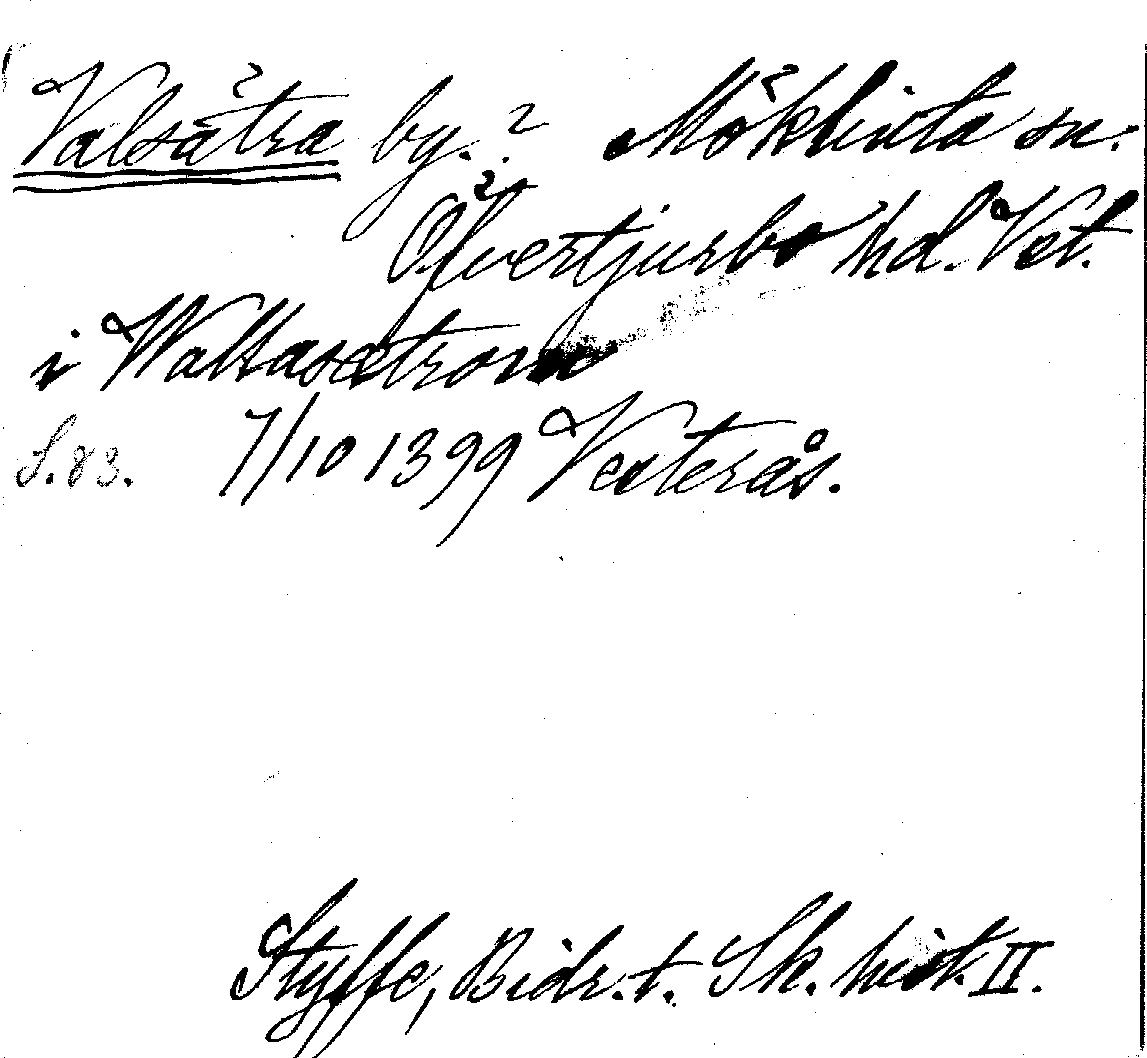 Valsåtra by.? Möklinta sn.
Öfvertjurbo hd. Vst.
i Walsasætrom
S. 83. 7/10 1399 Vesterås.
Styffe, Bidr. t. Sk. hist. II.